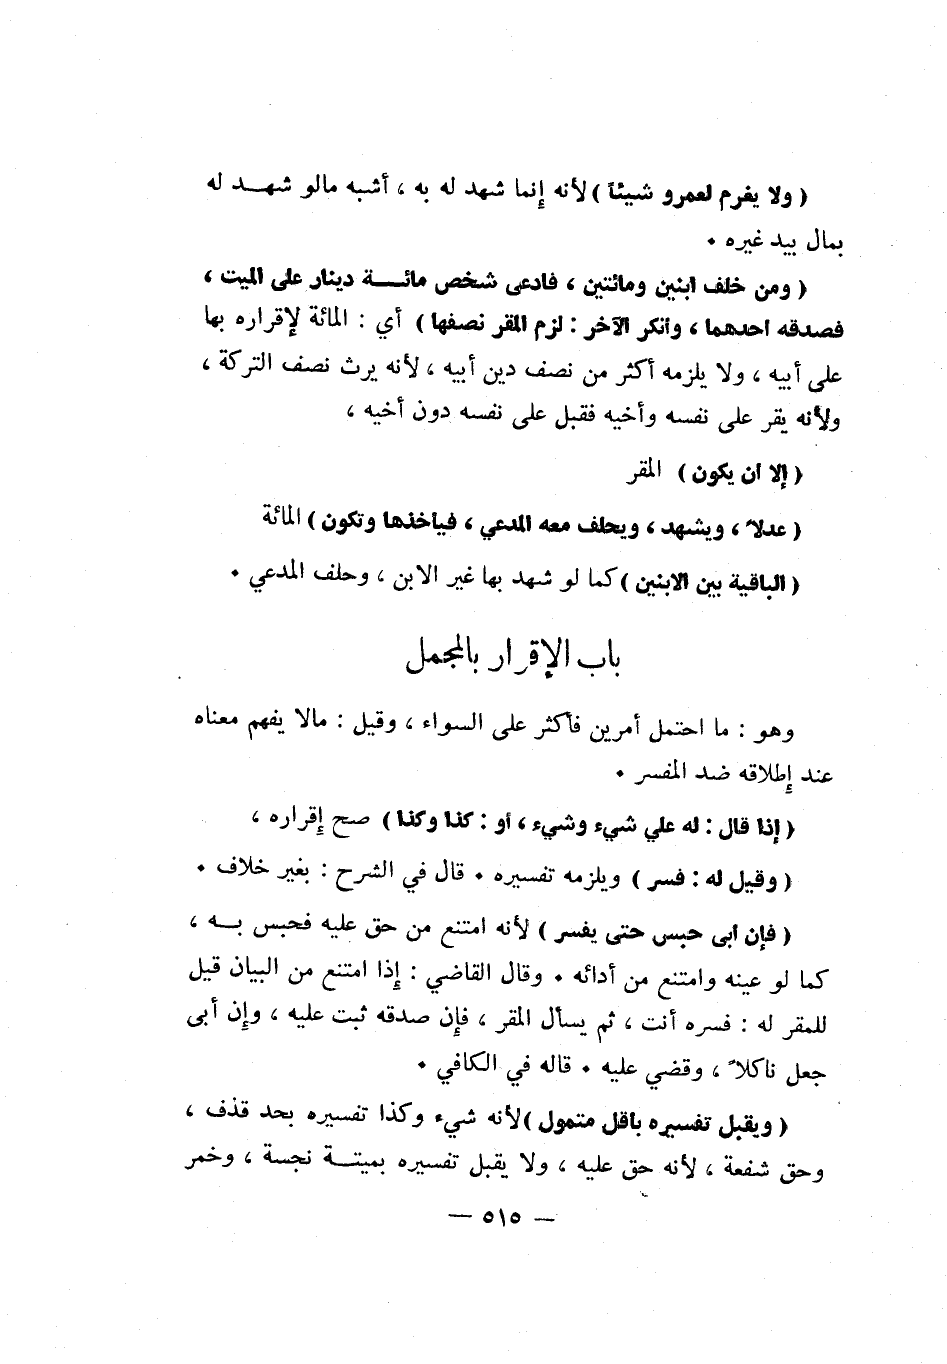 ( ولا يغرم لعمرو شيئاً ) لأنه إنما شهد له به ، أشبه مالو شهد له
بمال بيد غيره .
( ومن خلف ابنين ومائتين ، فادعى شخص مائة دينار على الميت ،
فصدقه احدهما ، وأنكر الآخر : لزم المقر نصفها ) أي : المائة لإقراره بها
على أبيه ، ولا يلزمه أكثر من نصف دين أبيه ، لأنه يرث نصف التركة ،
ولأنه يقر على نفسه وأخيه فقبل على نفسه دون أخيه ،
( إلا أن يكون ) المقر
( عدلاً ، ويشهد ، ويحلف معه المدعي ، فيأخذها وتكون ) المائة
( الباقية بين الابنين ) كما لو شهد بها غير الابن ، وحلف المدعي .
باب الإقرار بالمجمل
وهو : ما احتمل أمرين فأكثر على السواء ، وقيل : مالا يفهم معناه
عند إطلاقه ضد المفسر .
( إذا قال : له علي شيء وشيء ، أو : كذا وكذا ) صح إقراره ،
( وقيل له : فسر ) ويلزمه تفسيره . قال في الشرح : بغير خلاف .
( فإن ابى حبس حتى يفسر ) لأنه امتنع من حق عليه فحبس به ،
كما لو عينه وامتنع من أدائه . وقال القاضي : إذا امتنع من البيان قيل
للمقر له : فسره أنت ، ثم يسأل المقر ، فإن صدقه ثبت عليه ، وإن أبى
جعل ناكلاً ، وقضي عليه . قاله في الكافي .
( ويقبل تفسيره باقل متمول ) لأنه شيء وكذا تفسيره بحد قذف ،
وحق شفعة ، لأنه حق عليه ، ولا يقبل تفسيره بميتة نجسة ، وخمر
— ٥١٥ —